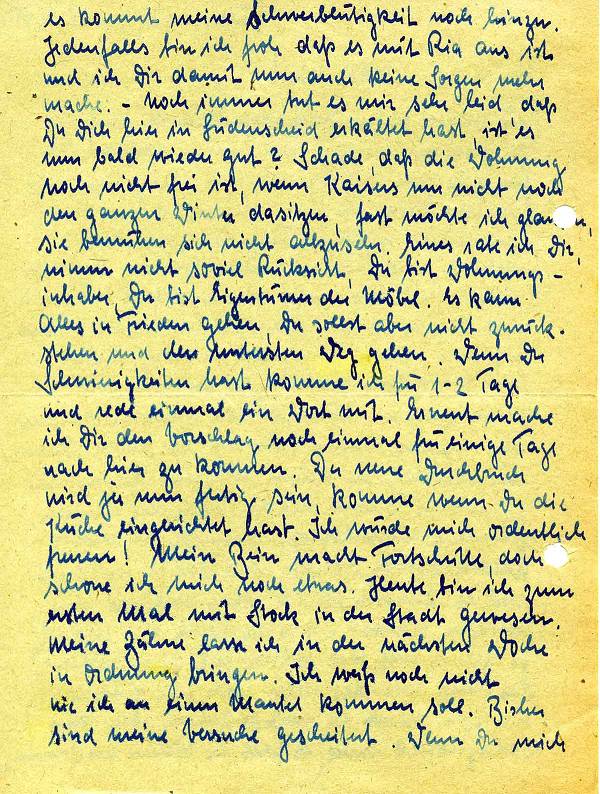 es kommt meine Schwerblütigkeit noch hinzu.
Jedenfalls bin ich froh daß es mit Ria aus ist
und ich Dir damit nun auch keine Sorgen mehr
mache. – Noch immer tut es mir sehr leid, daß
Du Dich hier in Lüdenscheid erkältet hast, ist es
nun bald wieder gut? Schade, daß die Wohnung
noch nicht frei ist, wenn Kaisers nun nicht noch
den ganzen Winter dasitzen, fast möchte ich glauben,
sie bemühen sich nicht allzusehr. Eines rate ich Dir,
nimm nicht soviel Rücksicht, Du bist Wohnungs-
inhaber, Du bist Eigentümer der Möbel. Es kann
Alles in Frieden gehen, Du sollst aber nicht zurück-
stehen und den untersten Weg gehen. Wenn Du
Schwierigkeiten hast komme ich für 1-2 Tage
und rede einmal ein Wort mit. Erneut mache
ich Dir den Vorschlag noch einmal für einige Tage
nach hier zu kommen. Der neue
wird ja nun fertig sein, komme wenn Du die
Küche eingerichtet hast. Ich würde mich ordentlich
freuen! Mein Bein macht Fortschritte, doch
schone ich mich noch etwas. Heute bin ich zum
ersten Mal mit Stock in der Stadt gewesen.
Meine Zähne lasse ich in der nächsten Woche
in Ordnung bringen. Ich weiß noch nicht
wie ich an einen Mantel kommen soll. Bisher
sind meine Versuche gescheitert. Wenn Du mich